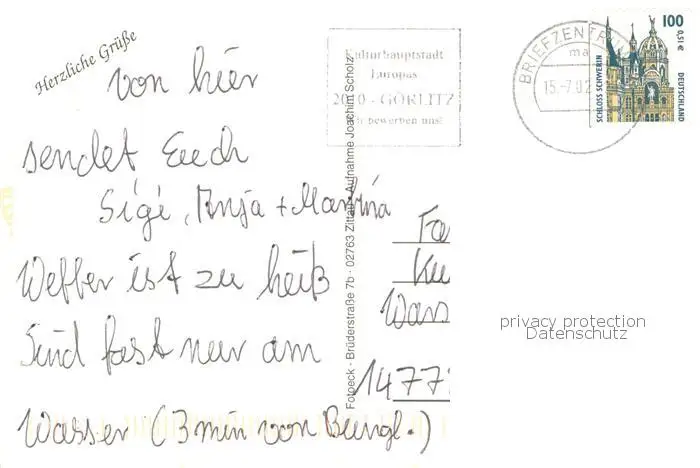 Herzliche Grüße
von hier
sendet Euch
Sigi, Anja + Martina
Wetter ist zu heiß
Sind fast nur am
Wasser (3 min von Bungl.)
Kulturhauptstadt
Europas
2010 - GÖRLITZ
wir bewerben uns!
BRIEFZENTRUM
15.-7.02
100
0,51 €
SCHLOSS SCHWERIN
DEUTSCHLAND
Fotoeck · Brüderstraße 7b · 02763 Zittau · Aufnahme Joachim Scholz
Fa
Ku
Wass
1477
privacy protection
Datenschutz